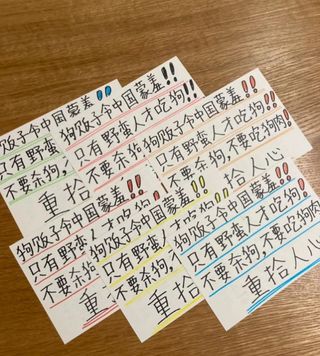 狗贩子令中国蒙羞!!
只有野蛮
不要杀狗,
重拾
狗贩子令中国蒙羞!!
只有野蛮人才吃狗!!
不要杀狗
狗贩子令中国蒙羞!!
只有野蛮人才吃狗!!
不要杀狗,不要吃狗肉!
拾人心
狗贩子令中国蒙羞!!
只有野蛮人才吃狗
不要杀狗
重
狗贩子令中国蒙羞!!
只有野蛮人才吃狗!!
不要杀狗
重
狗贩子令中国蒙羞!!
只有野蛮人才吃狗!
不要杀狗,不要吃狗肉
重拾人心